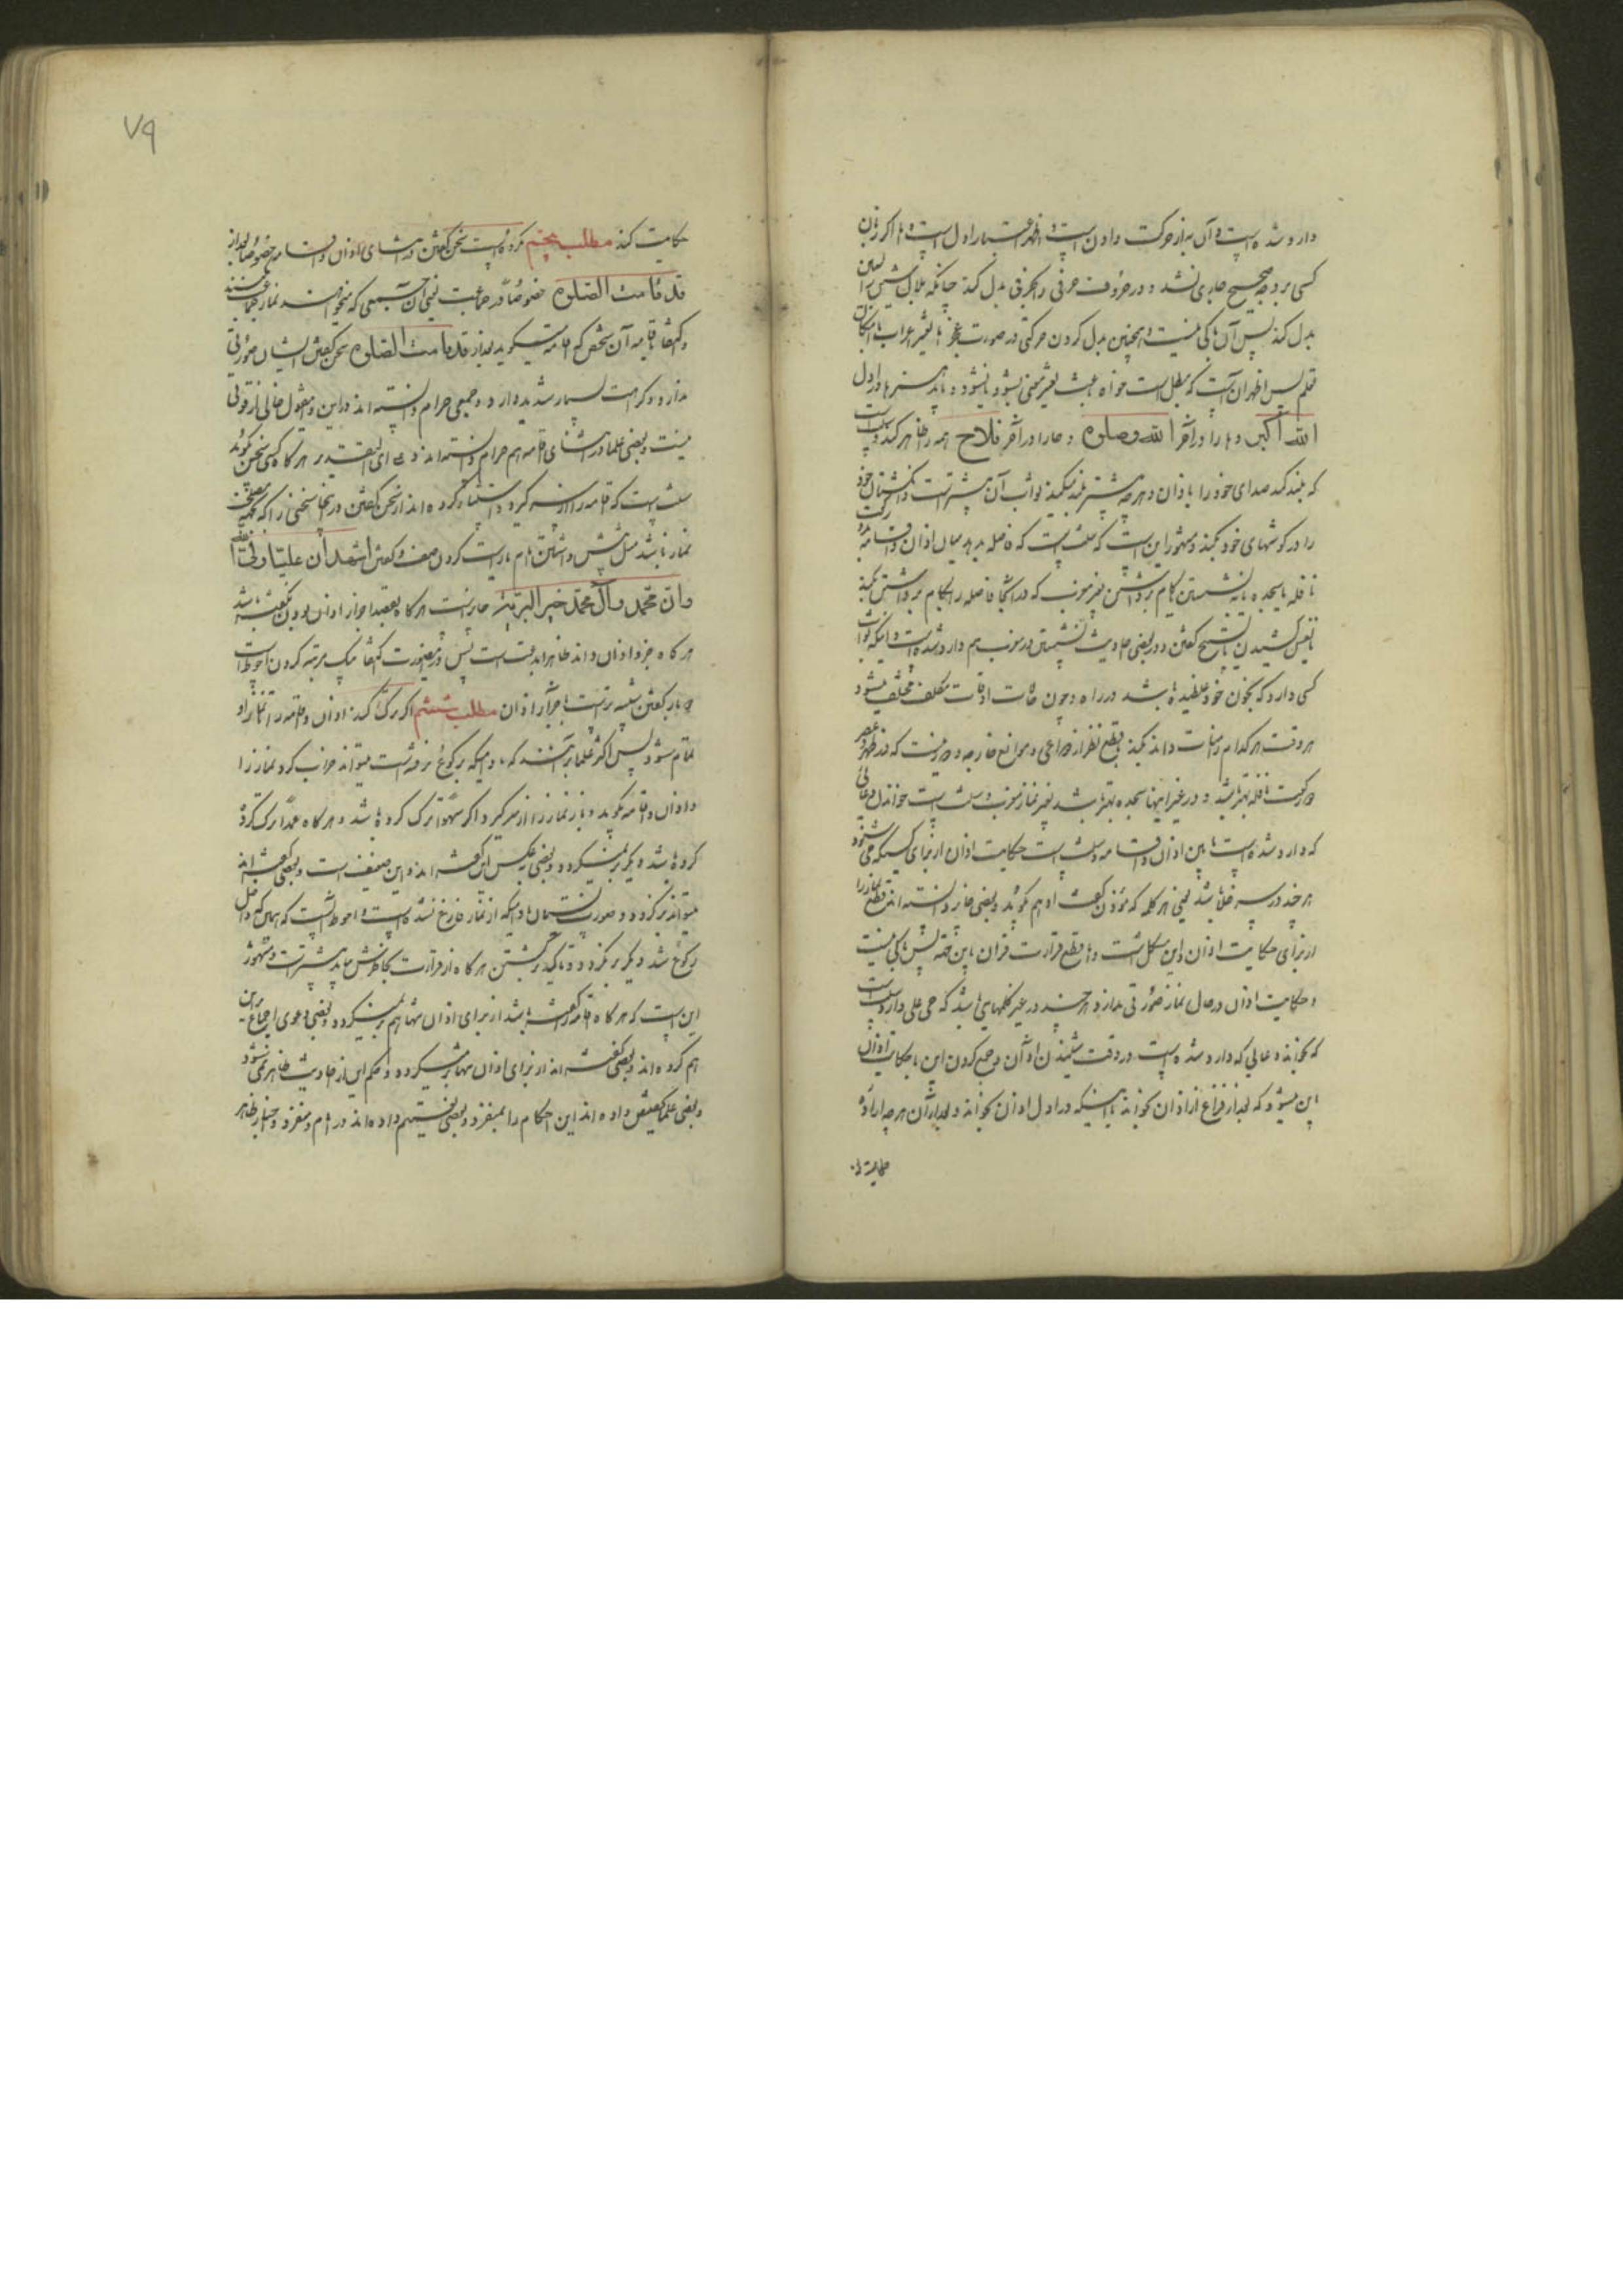 وارد شده است و آن به از حرکت دادن است و اظهر اعتبار اول است و اگر زبان
کسی بر وجه صحیح جاری نشد و در حروفت حرفی را بحرفی بدل کند چنانکه بلال شین را سین
بدل کند پس آن باکی نیست و همچنین بدل کردن حرکتی در صورت عجز اما تغییر اعراب با امکان
تعلم پس اظهر آن است که مبطل است خواه باعث تغییر معنی بشود یا نشود و باید همزه را در اول
الله اکبر و ها را در آخر الله و صلوة و حا را در آخر فلاح همه را ظاهر کند و سنت است
که بلند کند صدای خود را باذان و هر چه بیشتر بلند میکند ثواب آن بیشتر است و انگشتان خود
را در گوشهای خود بکند و مشهور این است که سنت است که فاصله بدهد میان اذان و اقامه بدو رکعت
نافله یا سجده یا نشستن یا گام برداشتن بغیر مغرب که در آنجا فاصله را بگام برداشتن بکند
یا نفس کشیدن یا تسبیح گفتن و در بعضی احادیث نشستن در مغرب هم وارد شده است و اینکه ثواب
کسی دارد که بخون خود غلطیده باشد در راه و چون حالات اوقات مکلف مختلف میشود
هر وقت هر کدام را مناسب داند بکند با قطع نظر از دواعی و موانع خارجه دور نیست که در ظهر و عصر
دو رکعت نافله بهتر باشد و در غیر اینها سجده بهتر باشد بغیر نماز مغرب و سنت است خواندن دعائی
که وارد شده است مابین اذان و اقامه و سنت است حکایت اذان از برای کسیکه می شنود
هر چند در سر خلا باشد یعنی هر کلمه که مؤذن گفت او هم بگوید و بعضی جایز دانسته اند قطع نماز را
از برای حکایت اذان و این مشکل است و اما قطع قرائت قران باین جهة پس باکی نیست
و حکایت اذان در حال نماز ضرورتی ندارد هر چند در غیر کلمهایی باشد که حی علی دارد و سنت است
که بخواند دعایی که وارد شده است در وقت شنیدن اذان و جمع کردن این با حکایت اذان
این میشود که بعد از فراغ از اذان بخواند یا اینکه در اول اذان بخواند و بعد از آن هر چه را اراده
حکایت کند
حکایت کند مطلب پنجم مکروه است سخن گفتن در اثنای اذان و اقامه خصوصا بعد از
قد قامت الصلوة خصوصا در جماعت یعنی آن جمعی که میخواهند نماز جماعت کنند
و اکتفا باقامه آن شخص که اقامه میگوید بعد از قد قامت الصلوة سخن گفتن ایشان ضرورتی
ندارد و کراهت بسیار شدید دارد و جمعی حرام دانسته اند و این قول خالی از قوتی
نیست و بعضی علما در اثنای اقامه هم حرام دانسته اند و علی ای تقدیر هر گاه کسی سخن بگوید
سنت است که اقامه را از سر گیرد و استثنا کرده اند از سخن گفتن در اینجا سخنی را که بجهة مصلحت
نماز باشد مثل پیش داشتن امام یا راست کردن صف و گفتن اشهد ان علیا ولی الله
وان محمد وآل محمد خیر البریه جایز نیست هر گاه بقصد اجزاء اذان بودن گفته باشد
هر گاه جزو اذان داند ظاهرا بدعت است پس در این صورت اکتفا بیک مرتبه کردن احوط است
دو بار گفتن شبیه تر است باجزاء اذان مطلب ششم اگر ترک کند اذان و اقامه را تا نماز او
تمام شود پس اکثر علما بر آنند که مادامیکه برکوع نرفته است میتواند خراب کرد نماز را
و اذان و اقامه بگوید و باز نماز را از سر گیرد اگر سهوا ترک کرده باشد و هر گاه عمدا ترک کرده
کرده باشد دیگر بر نمیگردد و بعضی بعکس این گفته اند و این ضعیف است و بعضی گفته اند
میتواند برگردد در صورت نسیان مادامیکه از نماز فارغ نشده است و احوط آنست که همین که داخل
رکوع شد دیگر بر نگردد و تاکید برگشتن هر گاه از قرائت بخاطرش بیاید بیشتر است و مشهور
این است که هر گاه اقامه گفته باشد از برای اذان تنها هم بر نمیگردد و بعضی دعوی اجماع بر این
هم کرده اند و بعضی گفته اند از برای اذان تنها بر میگردد و حکم این از احادیث ظاهر نمی شود
و بعضی علما تخصیص داده اند این احکام را بمنفرد و بعضی تعمیم داده اند در امام و منفرد و مختار ظاهر
۷۹